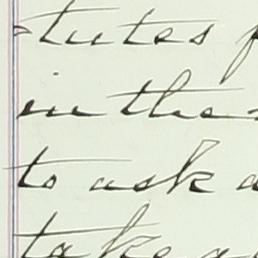 tutes
in the
to ask
take